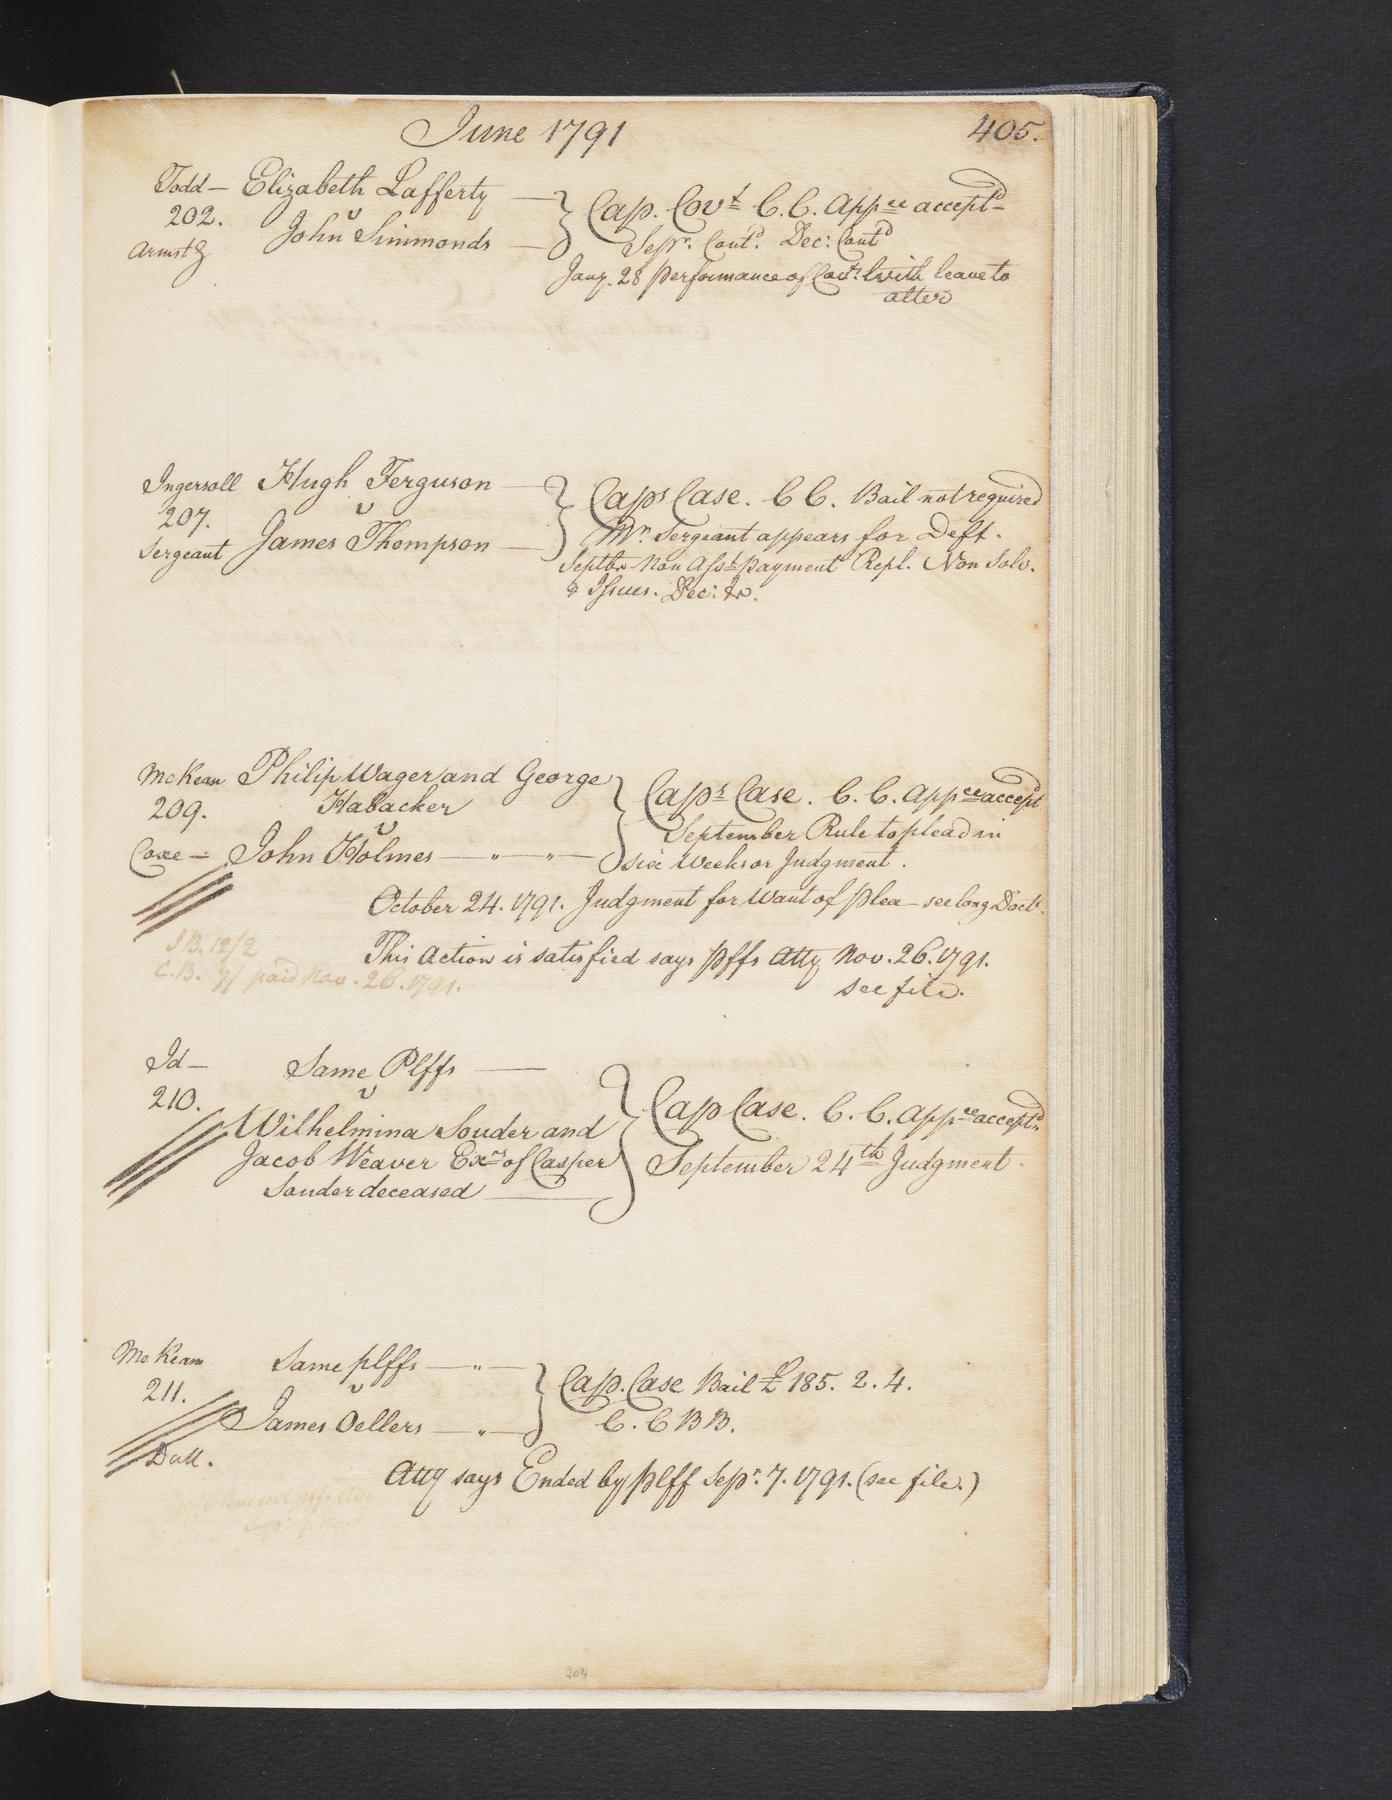 June 1791
405.
Todd — Elizabeth Lafferty
202. v
Armstg John Simmonds
Cap. Covt C. C. Appce acceptd
Sepr. Contd. Dec: Contd
Jany. 28 performance of Covts with leave to
alter
Ingersoll Hugh Ferguson
207. v
Sergeant James Thompson
Caps Case. C C. Bail not required
Mr. Sergeant appears for Deft.
Septbr Non Asst payment Repl. Non Solv.
& Issues. Dec:
McKean Philip Wager and George
209. Habacker
v
Coxe — John Holmes — " — " —
Caps Case. C. C. Appce accept
September Rule to plead in
six Weeks or Judgment.
October 24. 1791. Judgment for Want of plea — see long Doct.
This Action is satisfied says plffs Atty Nov. 26. 1791.
see file.
J B. 12/2
C. B. 7/ paid Nov. 26. 1791.
Id —
210. Same Plffs —
v
Wilhelmina Souder and
Jacob Weaver Exrs of Casper
Souder deceased
Cap Case. C. C. Appce acceptd.
September 24th Judgment.
McKean Same plffs — " —
211. v
James Oellers — " —
Dall.
Cap. Case Bail £ 185. 2. 4.
C. C B B.
Atty says Ended by plff Sepr. 7. 1791. (see file.)
204